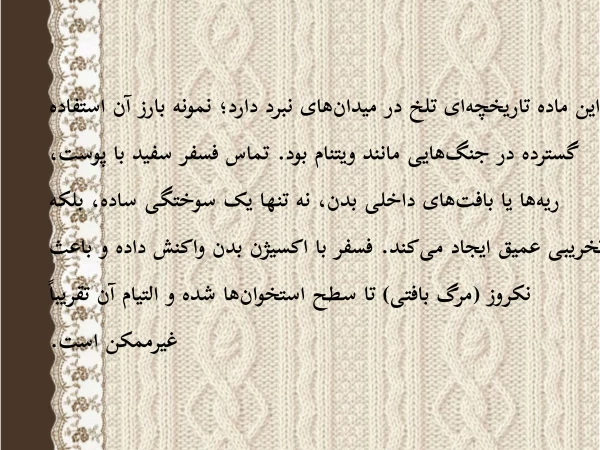 این ماده تاریخچه‌ای تلخ در میدان‌های نبرد دارد؛ نمونه بارز آن استفاده
گسترده در جنگ‌هایی مانند ویتنام بود. تماس فسفر سفید با پوست،
ریه‌ها یا بافت‌های داخلی بدن، نه تنها یک سوختگی ساده، بلکه
تخریبی عمیق ایجاد می‌کند. فسفر با اکسیژن بدن واکنش داده و باعث
نکروز (مرگ بافتی) تا سطح استخوان‌ها شده و التیام آن تقریباً
غیرممکن است.